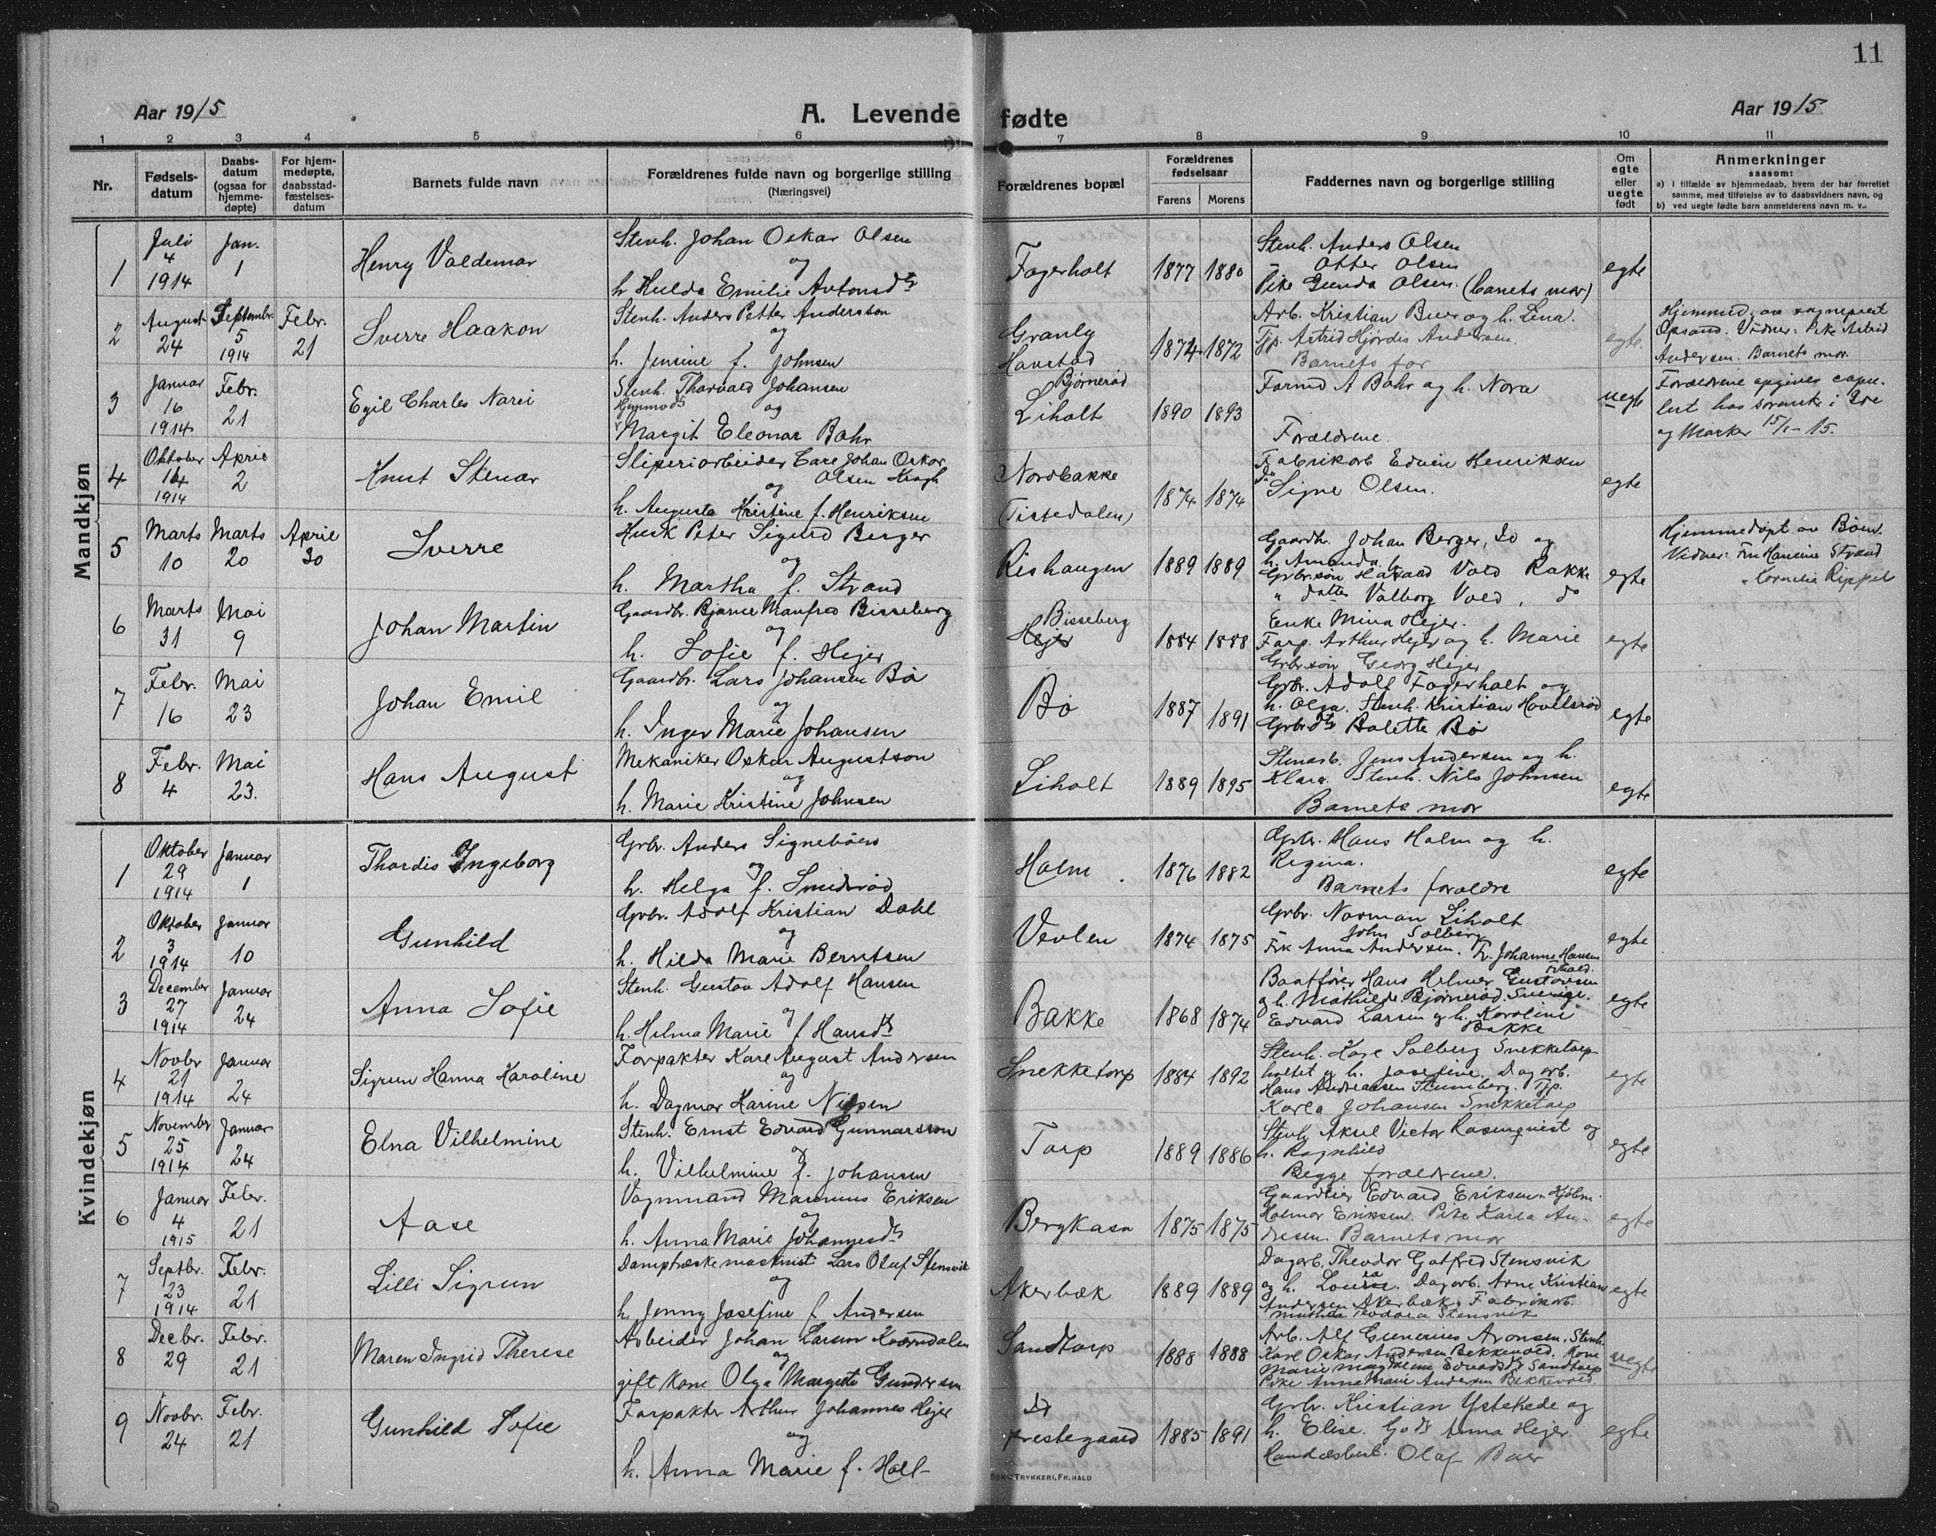 11
Aar 1915
A. Levende fødte
Aar 1915
1 2 3 4 5 6 7 8 9 10 11
Nr.
Fødsels-
datum
Daabs-
datum
(ogsaa for
hjemme-
døpte)
For hjem-
medøpte,
daabsstad-
fæstelses-
datum
Barnets fulde navn
Forældrenes fulde navn og borgerlige stilling
(Næringsvei)
Forældrenes bopæl
Forældrenes
fødselsaar
Farens Morens
Faddernes navn og borgerlige stilling
Om
egte
eller
uegte
født
Anmerkninger
saasom:
a) i tilfælde av hjemmedaab, hvem der har forrettet
samme, med tilføielse av to daabsvidners navn, og
b) ved uegte fødte barn anmelderens navn m. v.
Mandkjøn
1
Juli 4 1914
Jan. 1
Henry Valdemar
Stenh. Johan Oskar Olsen
og
h. Hulda Emilie Antonsdtr
Fagerholt
1877 1880
Stenh. Anders Olsen
Otter Olsen
Pike Gunda Olsen. (barnets mor)
egte
2
August 24
Septembr. 5 1914
Febr. 21
Sverre Haakon
Stenh. Anders Petter Andersson
og
h. Jensine f. Johnsen
Granly
Havstad
1874 1872
Arb. Kristian Buer og h. Lina.
Tjp. Astrid Hjørdis Andersen.
Barnets far
egte
Hjemmed. av sogneprest
Opsand. Vidner: Pike Astrid
Andersen. Barnets mor.
3
Januar 16 1914
Febr. 21
Egil Charles Narei
Stenh. Thorvald Johansen
og
Margit Eleonar Bohr
Bjørnerød
Liholt
1890 1893
Formd A Bohr og h. Nora
Forældrene.
uegte
Forældrene opgives
og Marker 15/1-15.
4
Oktober 14 1914
April 2
Knut Stenar
Sliperiarbeider Carl Johan Oskar
og Olsen Krogh
h. Augusta Kristine f. Henriksen
Nordbakke
(Tistedalen)
1874 1874
Fabrikarb Edvin Henriksen
do Signe Olsen.
egte
5
Marts 10
Marts 20
April 30
Sverre
Husk Peter Sigurd Berger
og
h. Martha f. Strand
Rishaugen
1889 1889
Gaardbr. Johan Berger, Id og
h. Amanda.
Grbr.søn Harald Vold Bakke
" datter Valborg Vold, do
egte
Hjemmedøpt av Bøen.
Vidner: Fru Hansine Strand
" Cornelia Rippel
6
Marts 31
Mai 9
Johan Martin
Gaardbr. Bjarne Manfred Bisseberg
og
h. Sofie f. Hejer
Bisseberg
Hejer
1884 1888
Enke Mina Hejer.
Farp. Arthur Hejer og h. Marie
Grbr.søn Georg Hejer
egte
7
Febr. 16
Mai 23
Johan Emil
Gaardbr. Lars Johansen Bø
og
h. Inger Marie Johansen
Bø
1887 1891
Grbr. Adolf Fagerholt og
h. Olga. Stenh. Kristian Hovelsrød
Grbrdtr Bolette Bø
egte
8
Febr. 4
Mai 23.
Hans August
Mekaniker Oskar Augustson
og
h. Marie Kristine Johnsen
Liholt
1889 1895
Stenarb. Jens Andersen og h.
Klara. Stenh. Nils Johnsen
Barnets mor
egte
Kvindekjøn
1
Oktober 29 1914
Januar 1
Thordis Ingeborg
Grbr. Anders Signebøen
og
h. Helga f. Smidsrød
Holm
1876 1882
Grbr. Hans Holm og h.
Regina.
Barnets foreldre
egte
2
Oktober 3 1914
Januar 10
Gunhild
Grbr. Adolf Kristian Dahl
og
h. Hilda Marie Berntsen
Vevlen
1874 1875
Grbr. Norman Liholt
John Solberg
Frk Anna Andersen. Fr. Johanne Hansen
egte
3
December 27 1914
Januar 24
Anna Sofie
Stenh. Gustav Adolf Hansen
og
h. Helma Marie f Hansdtr
Bakke
1868 1874
Baatfører Hans Helmer Gustavsen
og h. Mathilde Bjørnerød. Sverige.
Edvard Larsen og h. Karoline
Bakke
egte
4
Novbr 21 1914
Januar 24
Sigrun Hanna Karoline
Forpakter Karl August Andersen
og
h. Dagmar Harine Nilsen
Snekketorp
1884 1892
Stenh. Karl Solberg Snekketorp
og h. Josefine. Dagarb.
Hans Andreassen Stumberg. Tjp.
Karla Johansen Snekketorp
egte
5
November 25 1914
Januar 24
Elna Vilhelmine
Stenh. Ernst Edvard Gunnarsson
og
h. Vilhelmine f. Johansen
Torp
1889 1886
Stenh Aksel Victor Rosenqvist og
h. Ragnhild
Begge forældrene.
egte
6
Januar 4 1915
Febr. 21
Aase
Vognmand Marinius Eriksen
og
h. Anna Marie Johannesdtr
Bergkasa
1875 1875
Gaardeier Edvard Eriksen. Hjølm.
Halmar Eriksen. Pike Karla An-
dresen. Barnets mor
egte
7
Septbr. 23 1914
Febr. 21
Lilli Sigrun
Damptræskemaskinist Lars Olaf Stensvik
og
h. Jenny Josefine f. Andersen
Akerbæk
1889 1889
Dagarb. Theodor Gotfred Stensvik
og h. Lovisa. Dagarb. Arne Kristian
Andersen Akerbæk. Fabrikarb.
Mathilda Teodora Stensvik
egte
8
Decbr. 29
Febr. 21
Maren Ingrid Therese
Arbeider Johan Larsen Kværndalen
og
gift Kone Olga Margrete Gundersen
Sandtorp
1888 1888
Arb. Alf Gunerius Aronsen. Stenh.
Karl Oskar Andersen Bekkevold. Kone
Marie Magdalene Edvardsdtr Sandtorp
Pike Anna Marie Andersen Bekkevold
uegte
9
Novbr. 24
Febr. 21
Gunhild Sofie
Forpakter Arthur Johannes Hejer
og
h. Anna Marie f. Holt
Id
Prestegaard
1885 1891
Grbr. Kristian Ystehede og
h. Elise. Gdr Anna Hejer.
Handelsbest. Olaf Baer
egte
TRYKKERI, FR.HALD